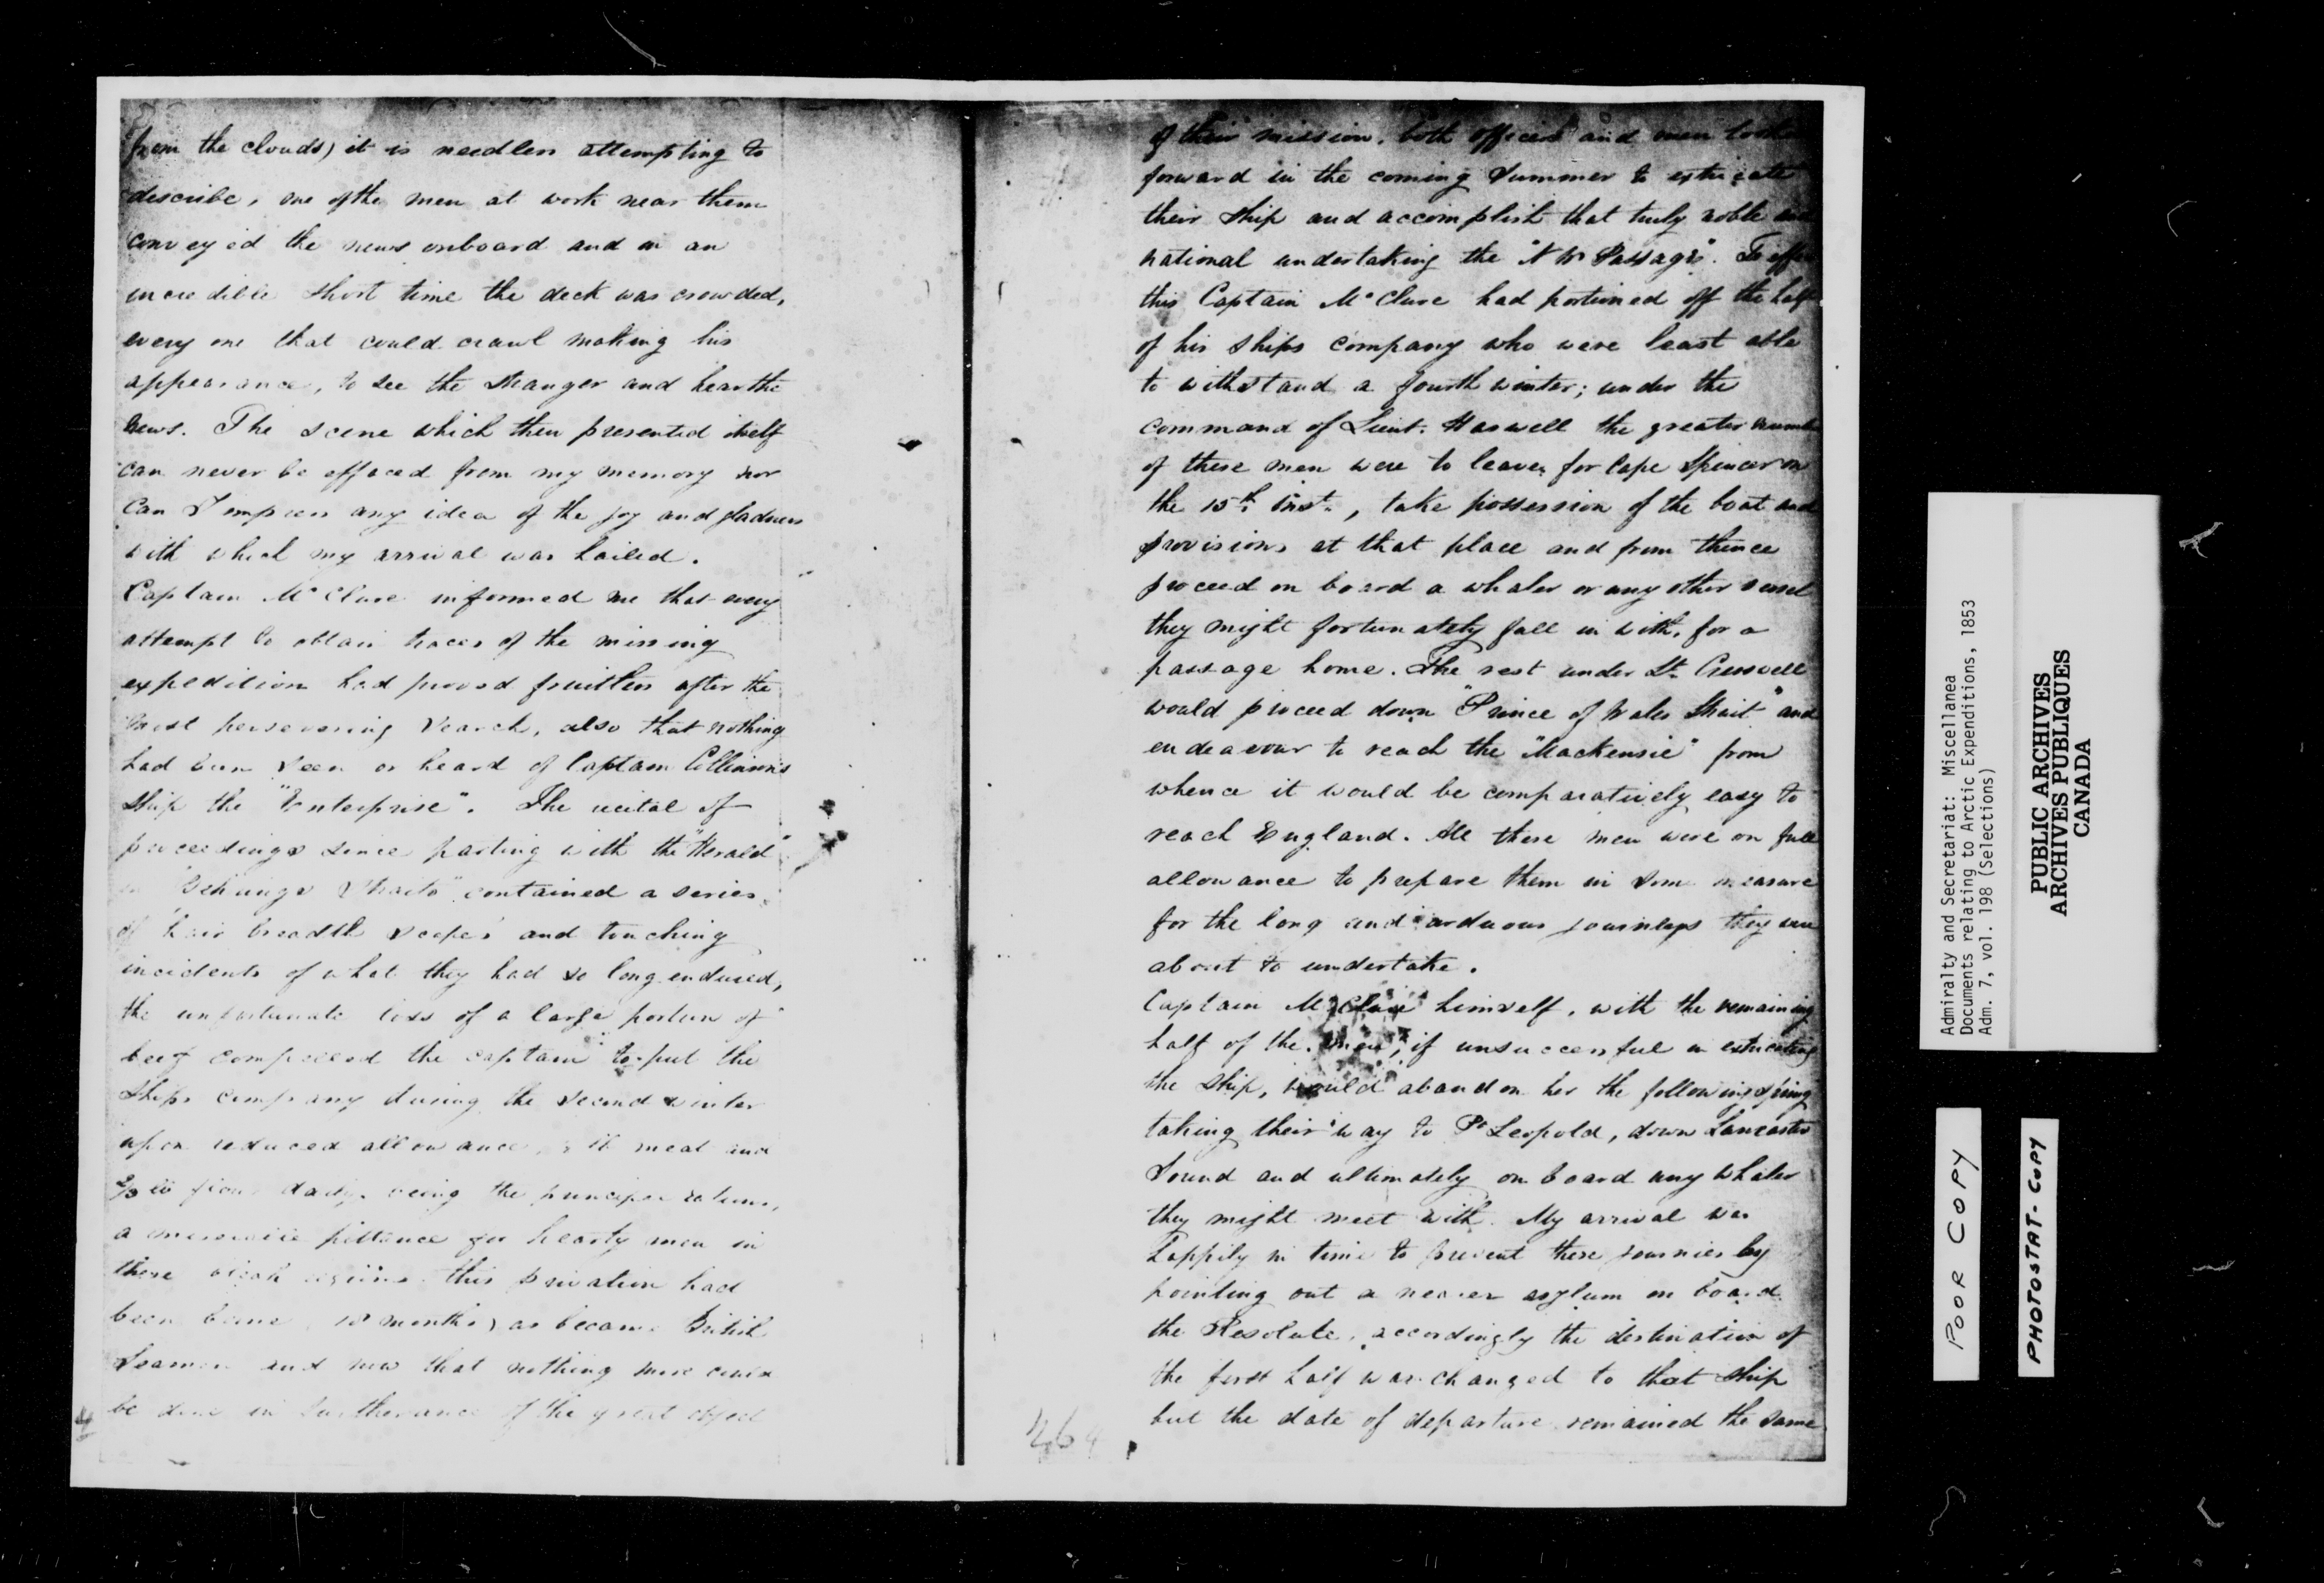 from the clouds) it is needless attempting to
describe, one of the men at work near them
conveyed the news onboard and in an
incredible short time the deck was crowded,
every one that could crawl making his
appearance, to see the stranger and hear the
news. The scene which then presented itself
can never be effaced from my memory nor
can I impress any idea of the joy and gladness
with which my arrival was hailed.
Captain McClure informed me that every
attempt to obtain traces of the missing
expedition had proved fruitless after the
most persevering search, also that nothing
had been seen or heard of Captain Collinson's
ship the "Enterprise". The recital of
proceedings since parting with the "Herald"
in "Behrings Straits" contained a series
of hair breadth scapes and touching
incidents of what they had so long endured,
the unfortunate loss of a large portion of
beef compelled the captain to put the
ships company during the second winter
upon reduced allowance, lb meat and
lb flour daily, being the principal
a miserable pittance for hearty men in
these bleak regions. this privation had
been borne 18 months) as became British
Seamen and now that nothing more could
be done in furtherance of the great object
4
of their mission, both officers and men look
forward in the coming summer to extricate
their ship and accomplish that truly noble and
national undertaking the "N W Passage". To effect
this Captain McClure had portioned off the half
of his ships company who were least able
to withstand a fourth winter; under the
command of Lieut. Haswell the greater number
of these men were to leave, for Cape Spencer on
the 15th inst., take possession of the boat and
provisions at that place and from thence
proceed on board a whaler or any other vessel
they might fortunately fall in with, for a
passage home. The rest under Lt. Cresswell
would proceed down "Prince of Wales Strait" and
endeavour to reach the "Mackensie" from
whence it would be comparatively easy to
reach England. All these men were on full
allowance to prepare them in some measure
for the long and arduous journeys they were
about to undertake.
Captain McClure himself, with the remaining
half of the men, if unsuccessful in extricating
the ship, would abandon her the following spring
taking their way to Pt Leopold, down Lancaster
Sound and ultimately on board any whaler
they might meet with. My arrival was
happily in time to prevent these journies by
pointing out a nearer asylum on board
the Resolute, accordingly the destination of
the first half was changed to that ship
but the date of departure remained the same
Admiralty and Secretariat: Miscellanea
Documents relating to Arctic Expenditions, 1853
Adm. 7, vol. 198 (Selections)
PUBLIC ARCHIVES
ARCHIVES PUBLIQUES
CANADA
POOR COPY
PHOTOSTAT-COPY